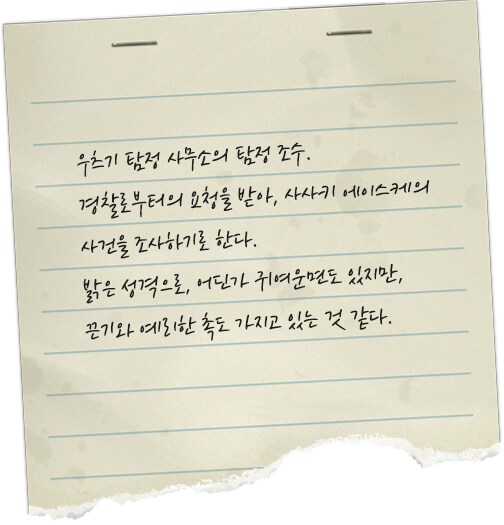 우츠기 탐정 사무소의 탐정 조수.
경찰로부터의 요청을 받아, 사사키 에이스케의
사건을 조사하기로 한다.
밝은 성격으로, 어딘가 귀여운면도 있지만,
끈기와 예리한 촉도 가지고 있는 것 같다.